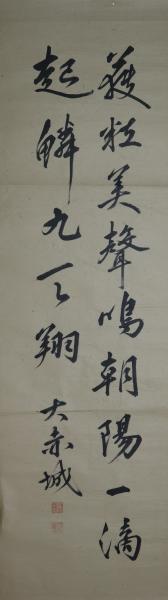 獲粒美聲鳴朝陽一滴
起鱗九天翔
大赤城